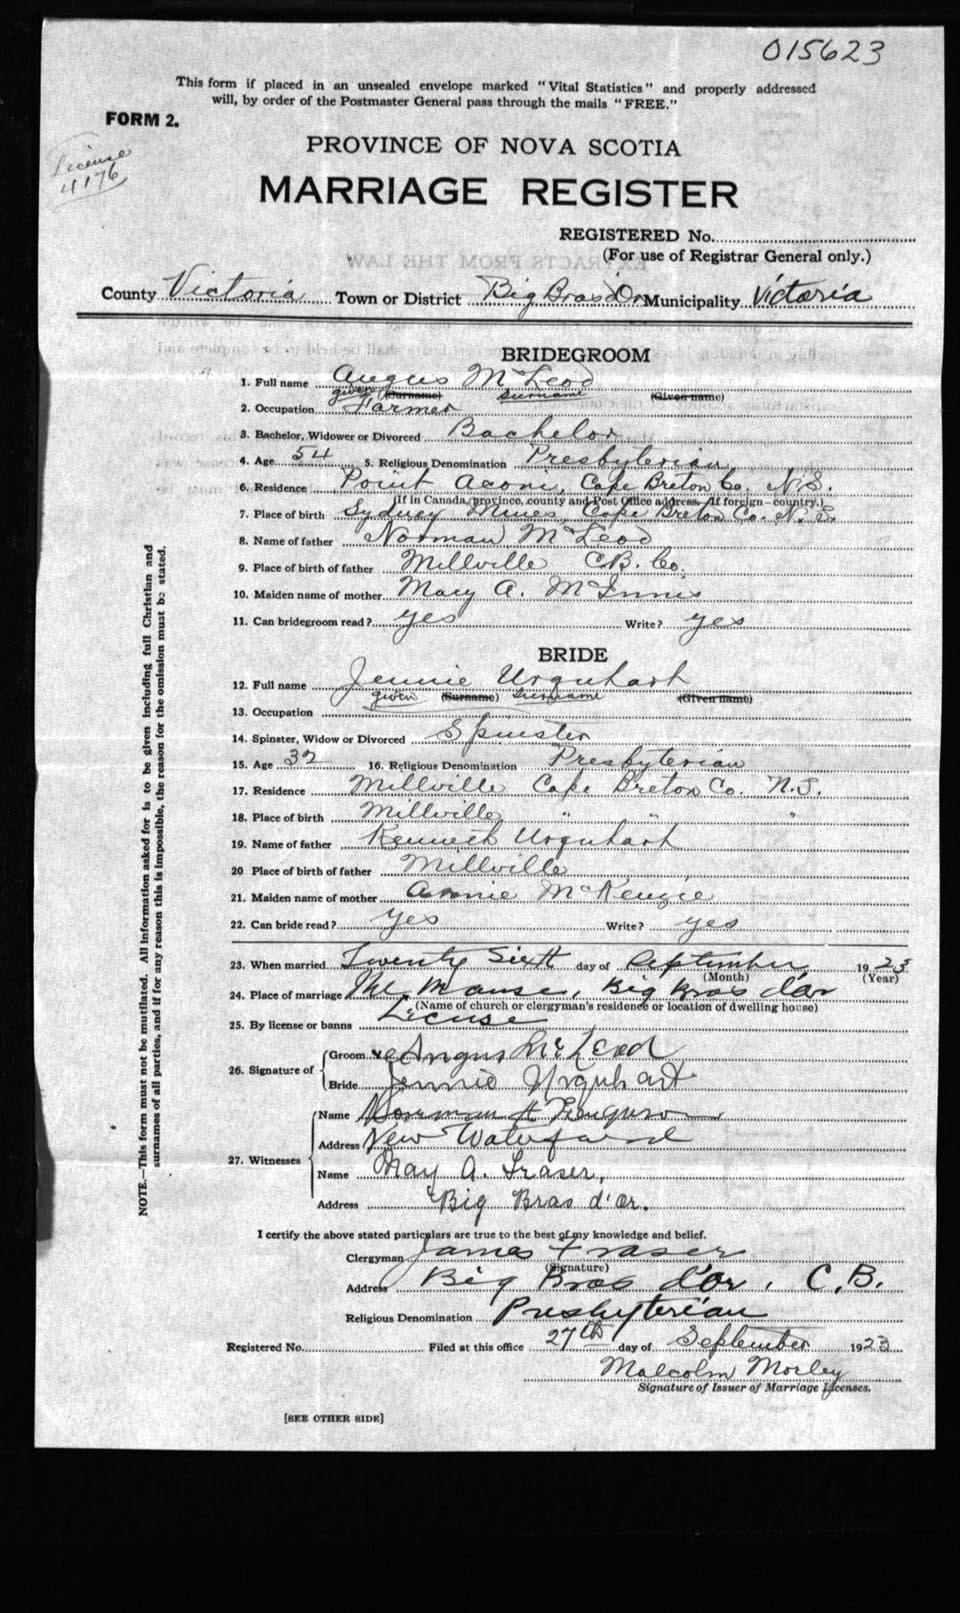 015623
This form if placed in an unsealed envelope marked "Vital Statistics" and properly addressed
will, by order of the Postmaster General pass through the mails "FREE."
FORM 2.
License
4176
PROVINCE OF NOVA SCOTIA
MARRIAGE REGISTER
REGISTERED No.
(For use of Registrar General only.)
County Victoria Town or District Big Bras d'Or Municipality Victoria
BRIDEGROOM
1. Full name Angus McLeod
given (Surname) surname (Given name)
2. Occupation Farmer
3. Bachelor, Widower or Divorced Bachelor
4. Age 54 5. Religious Denomination Presbyterian
6. Residence Point Aconi, Cape Breton Co. N.S.
(If in Canada, province, county and Post Office address. If foreign - country.)
7. Place of birth Sydney Mines, Cape Breton Co. N.S.
8. Name of father Norman McLeod
9. Place of birth of father Millville C.B. Co.
10. Maiden name of mother Mary A. McInnis
11. Can bridegroom read? yes Write? yes
BRIDE
12. Full name Jennie Urquhart
given (Surname) surname (Given name)
13. Occupation
14. Spinster, Widow or Divorced Spinster
15. Age 32 16. Religious Denomination Presbyterian
17. Residence Millville Cape Breton Co. N.S.
18. Place of birth Millville " " "
19. Name of father Kenneth Urquhart
20 Place of birth of father Millville
21. Maiden name of mother Annie McKenzie
22. Can bride read? yes Write? yes
23. When married Twenty Sixth day of September 1923
(Month) (Year)
24. Place of marriage The Manse, Big Bras d'or
(Name of church or clergyman's residence or location of dwelling house)
25. By license or banns License
26. Signature of
Groom Angus McLeod
Bride Jennie Urquhart
27. Witnesses
Name Norman H Ferguson
Address New Waterford
Name May A. Fraser,
Address Big Bras d'Or.
I certify the above stated particulars are true to the best of my knowledge and belief.
Clergyman James Fraser
(Signature)
Address Big Bras d'Or, C.B.
Religious Denomination Presbyterian
Registered No. Filed at this office 27th day of September 1923
Malcolm Morley
Signature of Issuer of Marriage Licenses.
[SEE OTHER SIDE]
NOTE.—This form must not be mutilated. All information asked for is to be given including full Christian and
surnames of all parties, and if for any reason this is impossible, the reason for the omission must be stated.